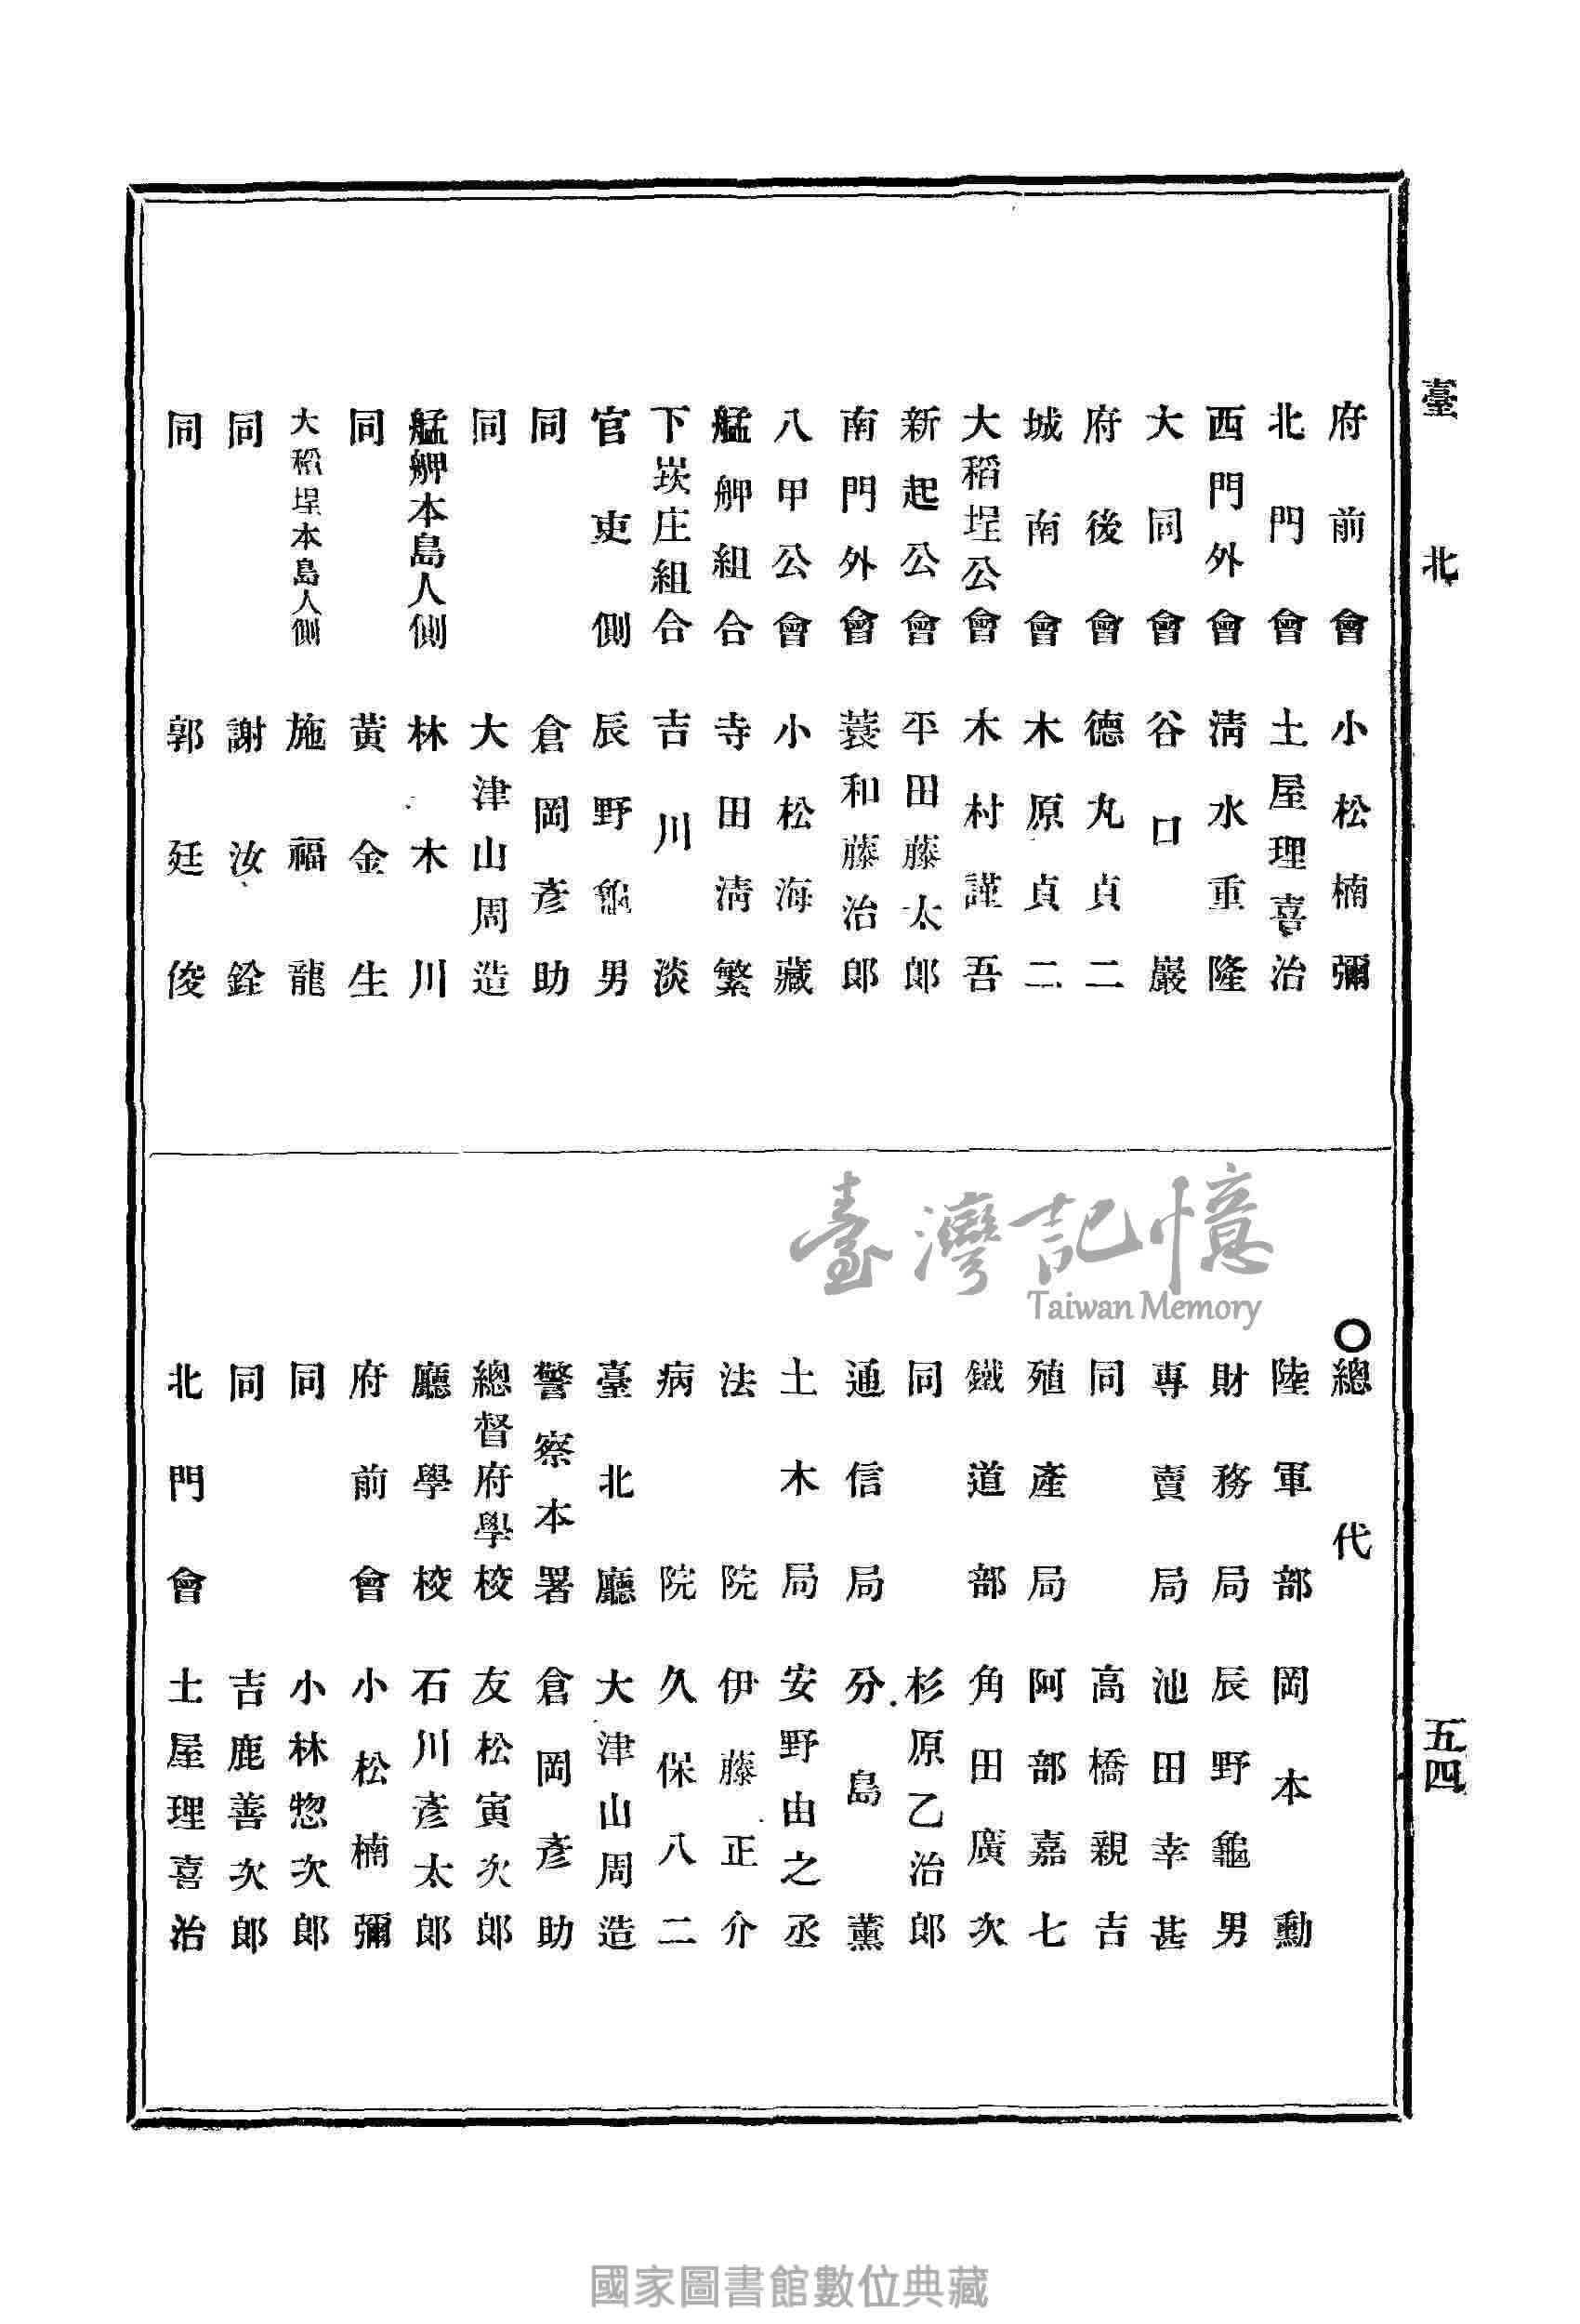 臺北
五四
府前會 小松楠彌
北門會 土屋理喜治
西門外會 淸水重隆
大同會 谷口巖
府後會 德丸貞二
城南會 木原貞二
大稻埕公會 木村謹吾
新起公會 平田藤太郎
南門外會 蓑和藤治郎
八甲公會 小松海藏
艋舺組合 寺田淸繁
下崁庄組合 吉川淡
官吏側 辰野龜男
同 倉岡彥助
同 大津山周造
艋舺本島人側 林木川
同 黃金生
大稻埕本島人側 施福龍
同 謝汝銓
同 郭廷俊
○總代
陸軍部 岡本勳
財務局 辰野龜男
專賣局 池田幸甚
同 高橋親吉
殖產局 阿部嘉七
鐵道部 角田廣次
同 杉原乙治郎
通信局 分島薰
土木局 安野由之丞
法院 伊藤正介
病院 久保八二
臺北廳 大津山周造
警察本署 倉岡彥助
總督府學校 友松寅次郎
廳學校 石川彥太郎
府前會 小松楠彌
同 小林惣次郎
同 吉鹿善次郎
北門會 土屋理喜治
臺灣記憶
Taiwan Memory
國家圖書館數位典藏